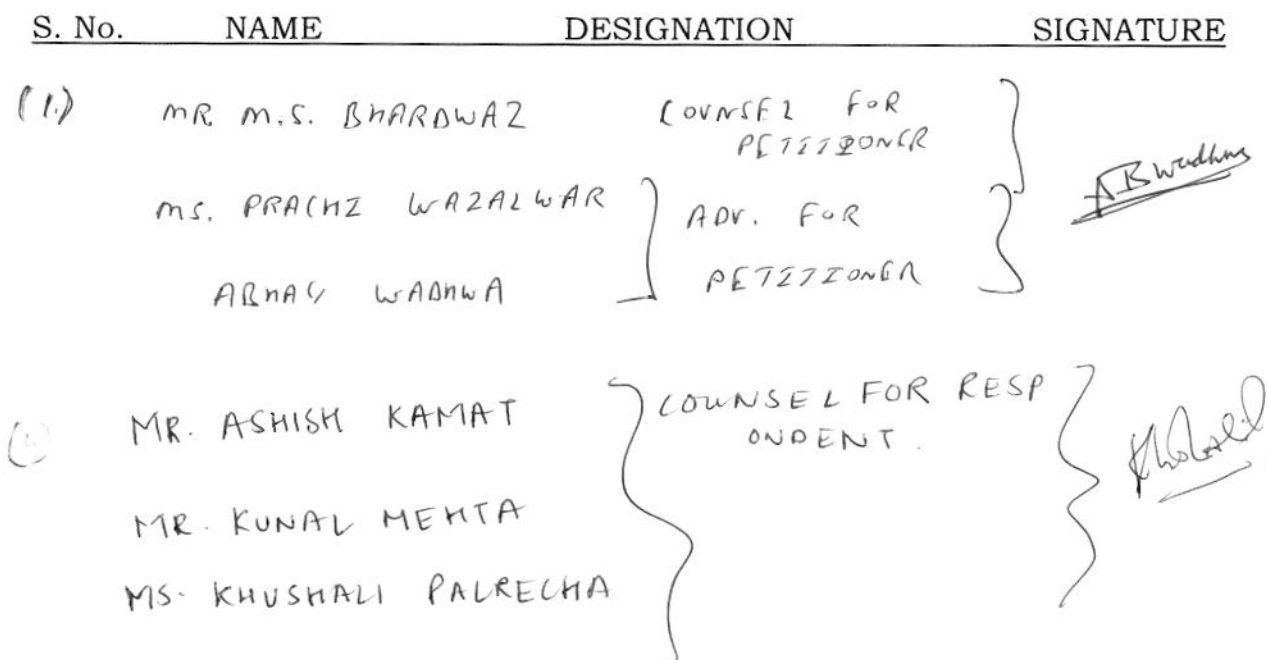 S. No. NAME DESIGNATION SIGNATURE
(1.) MR. M.S. BHARDWAZ COUNSEL FOR
PETITIONER
MS. PRACHI WAZALWAR ADV. FOR
ABHAY WADHWA PETITIONER
ABWadhwa
MR. ASHISH KAMAT COUNSEL FOR RESP
ONDENT.
MR. KUNAL MEHTA
MS. KHUSHALI PALRECHA